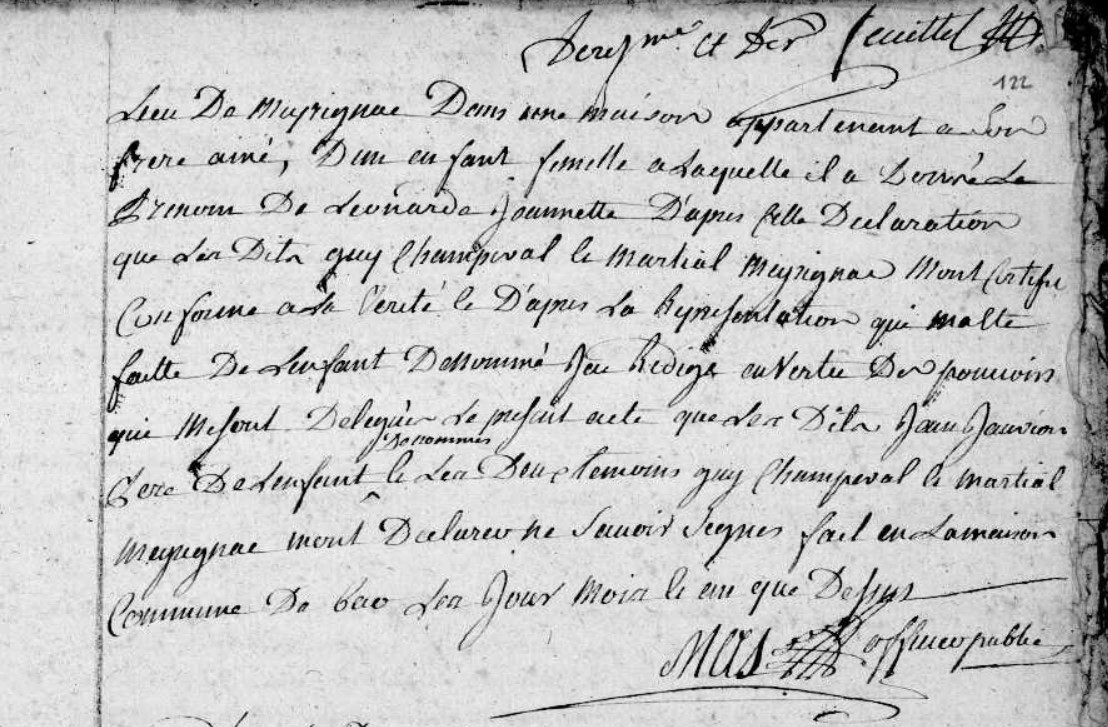 et Der feuillet
122
Lieu De Meyrignac Dans une maison appartenant a Son
frere ainé, D'un enfant femelle a Laquelle il a Donné Le
Prenom De Leonarde Jeannette D'apres Cette Declaration
que Les Dits guy Champeval et Martial Meyrignac Mont Certifié
Conforme a La Verité et D'apres La Representation qui matte
faitte De Lenfant Denommé Jai Redigé en Vertu Des pouvoirs
qui Me sont Delegués Le present acte que Les Dits Jean Jauvion
Denommés
Pere De Lenfant et Les Deux temoins guy Champeval et Martial
Meyrignac mont Declarer ne Savoir Signer fait en La maison
Commune De Les Jour Mois et an que Dessus
Mas officier public